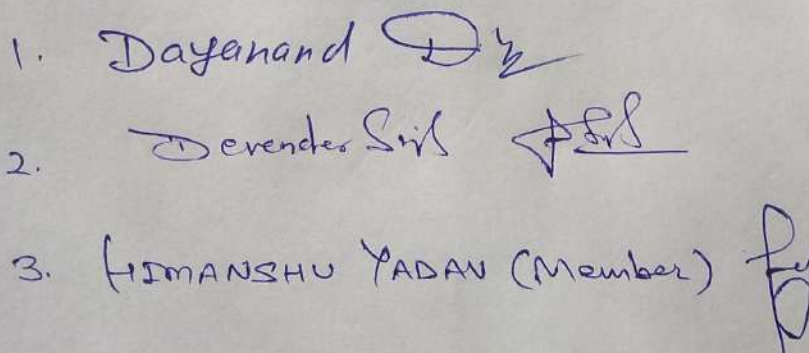 1. Dayanand
2. Devender
3. HIMANSHU YADAV (Member)